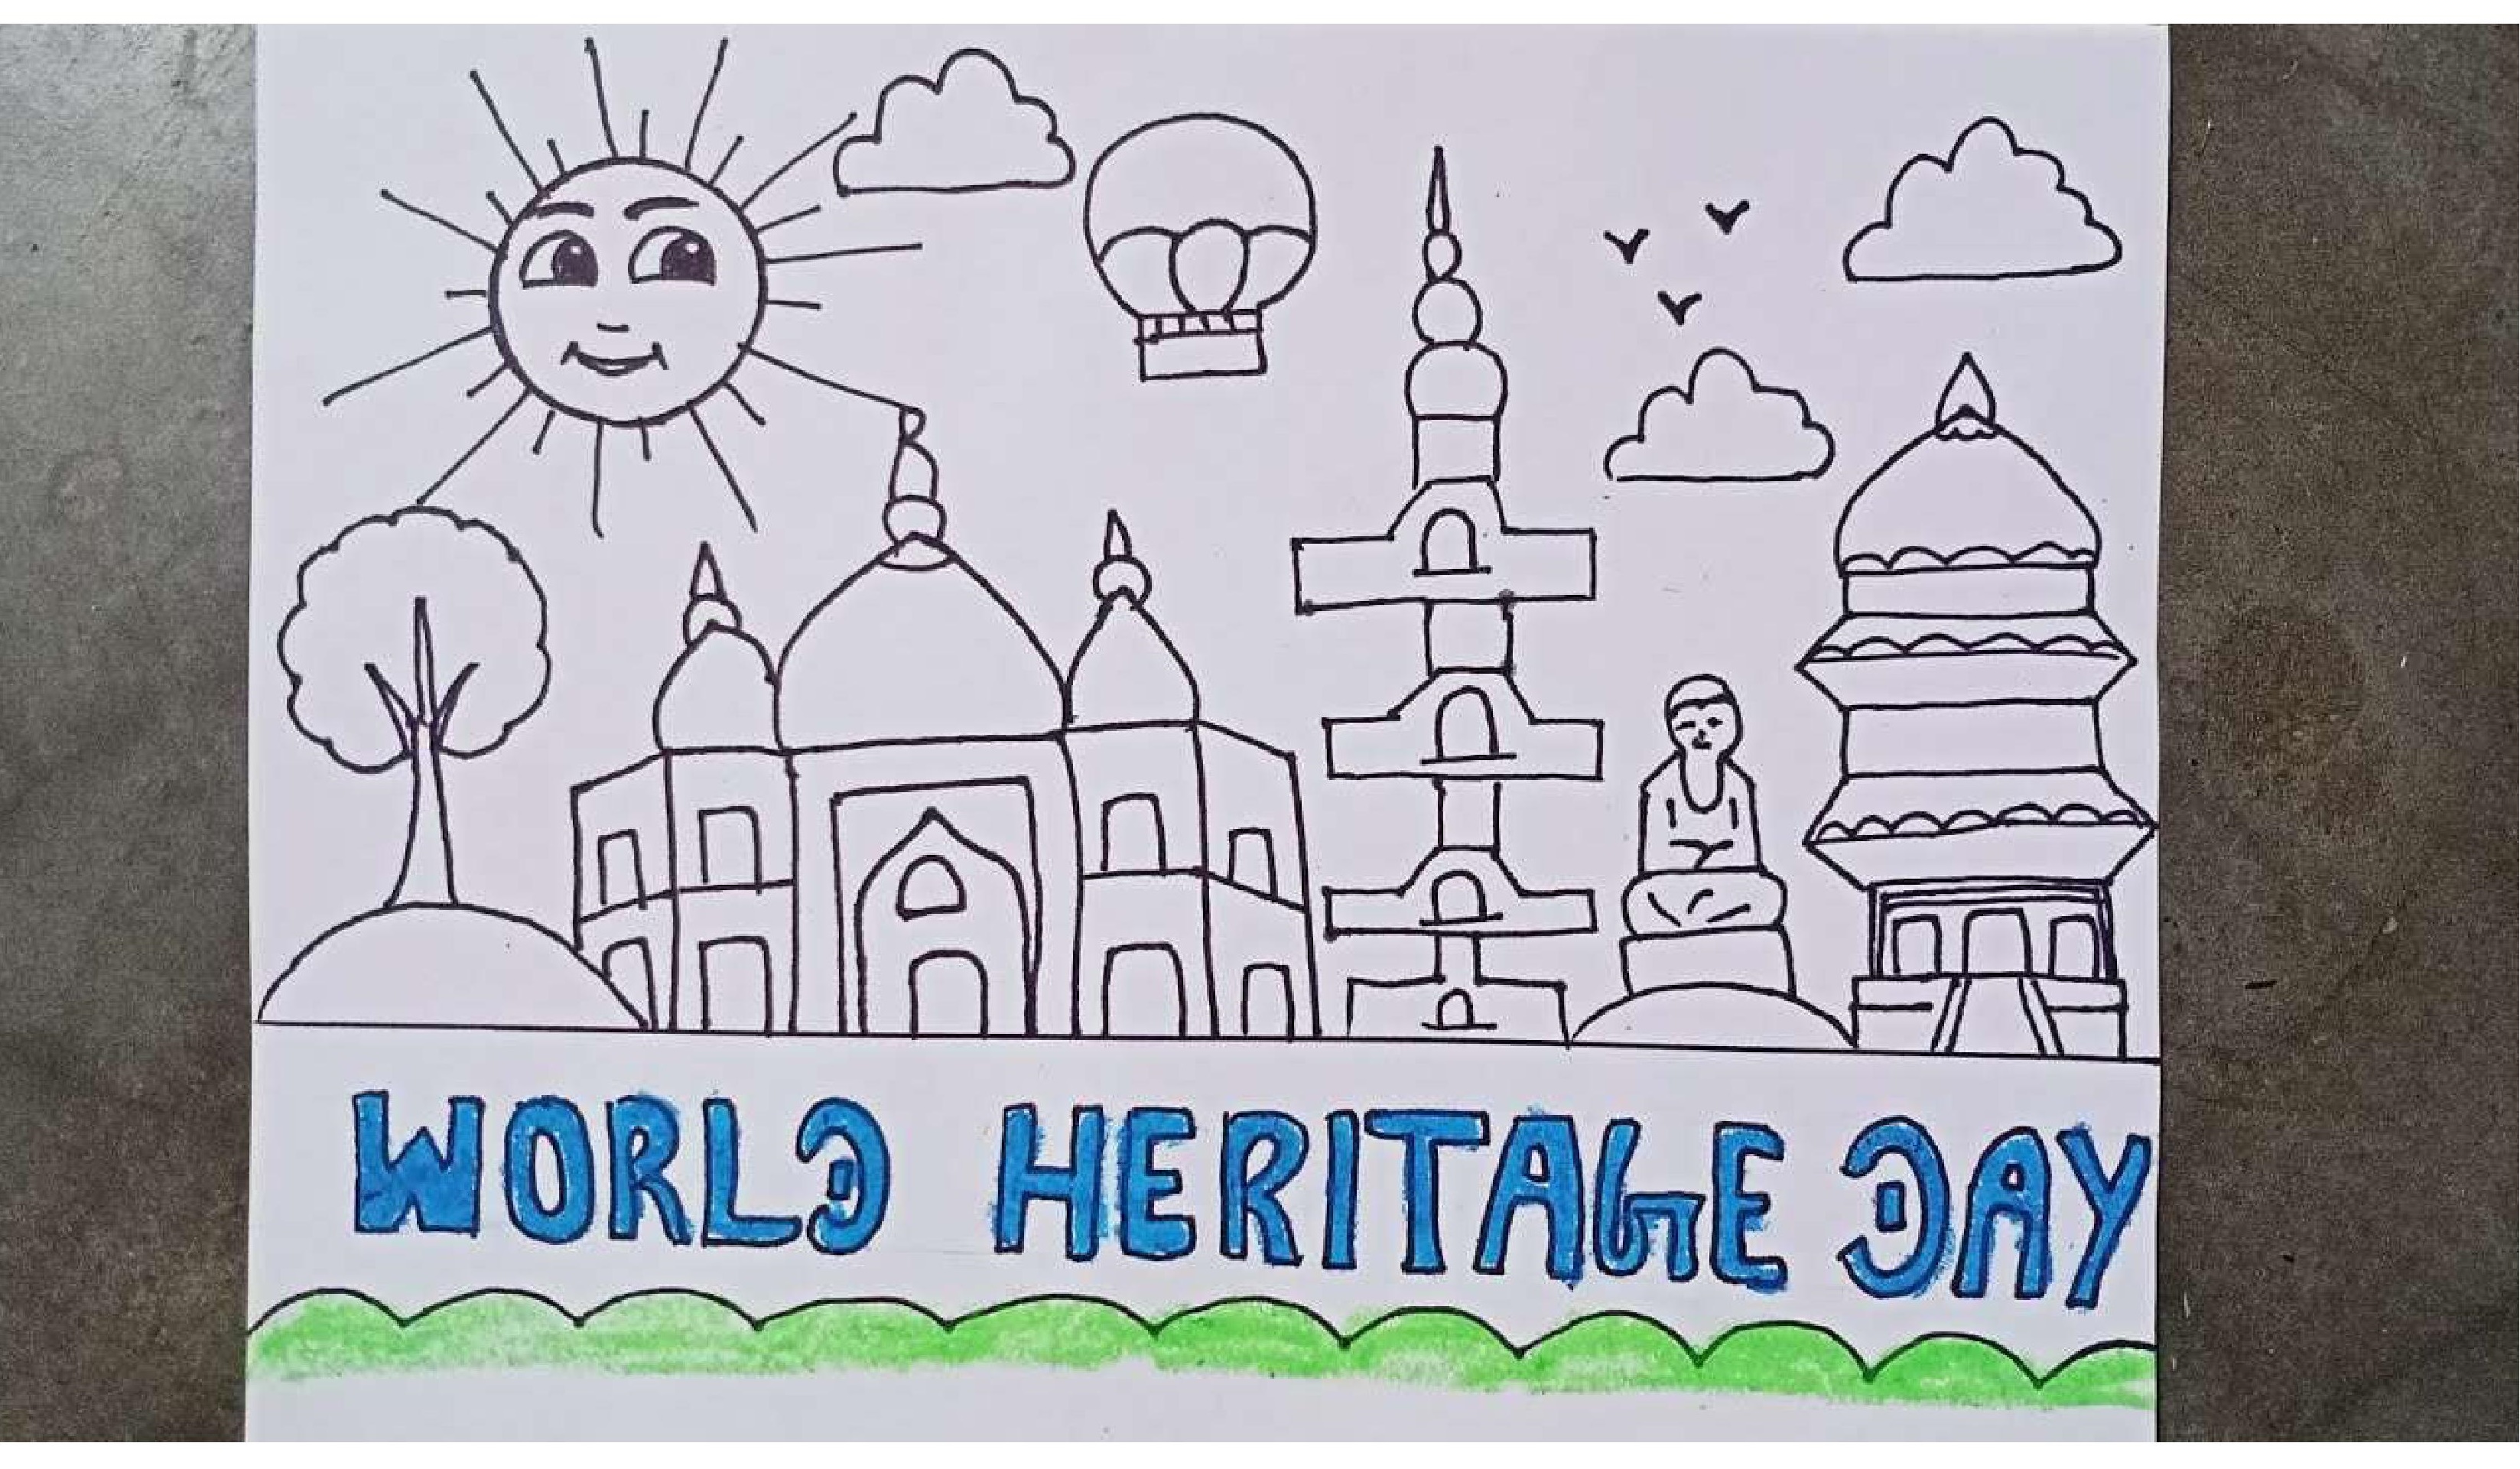 WORLD HERITAGE DAY